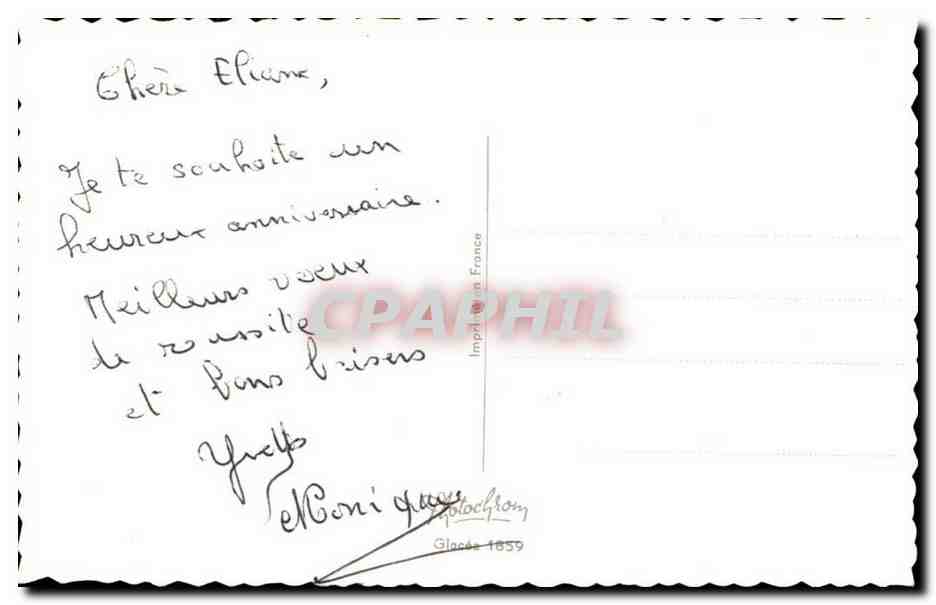 Chère Eliane,
Je te souhaite un
heureux anniversaire.
Meilleurs voeux
de reussite
et bons baisers
Monique
Imprimé en France
CPAPHIL
Photochrom
Glacée 1859